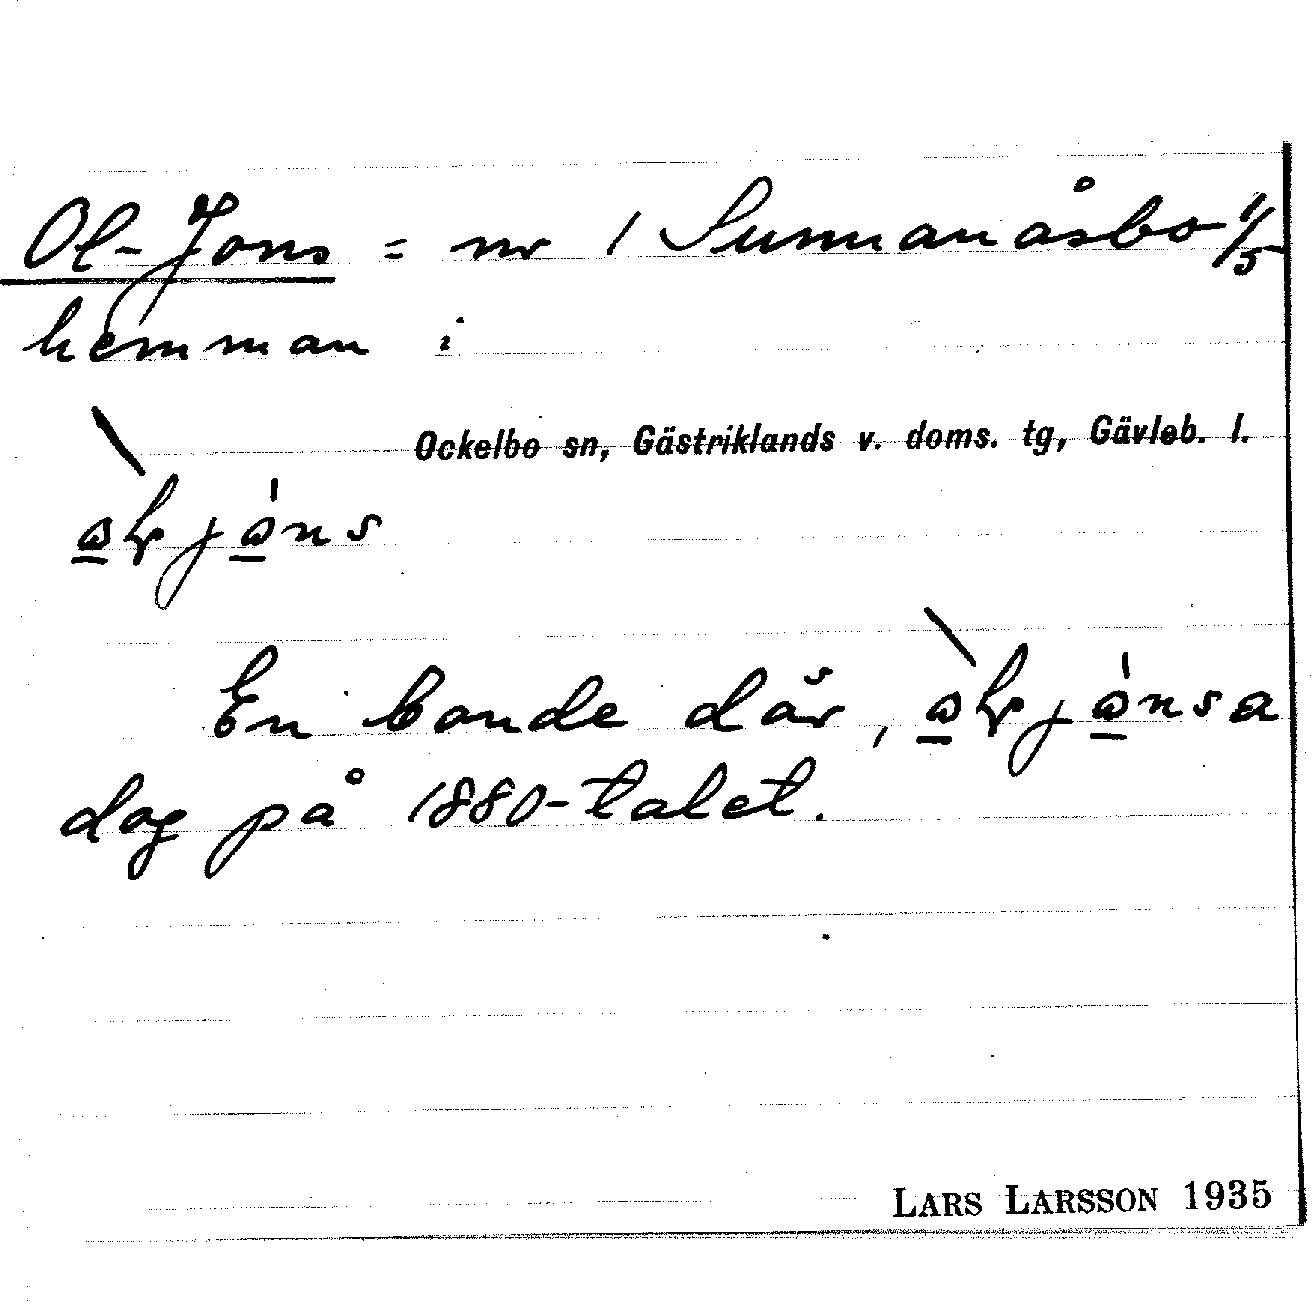 Ol-Jons = nr 1 Sunnanåsbo 1/5
hemman i
Ockelbo sn, Gästriklands v. doms. tg, Gävleb. l.
En bonde där,
dog på 1880-talet.
LARS LARSSON 1935